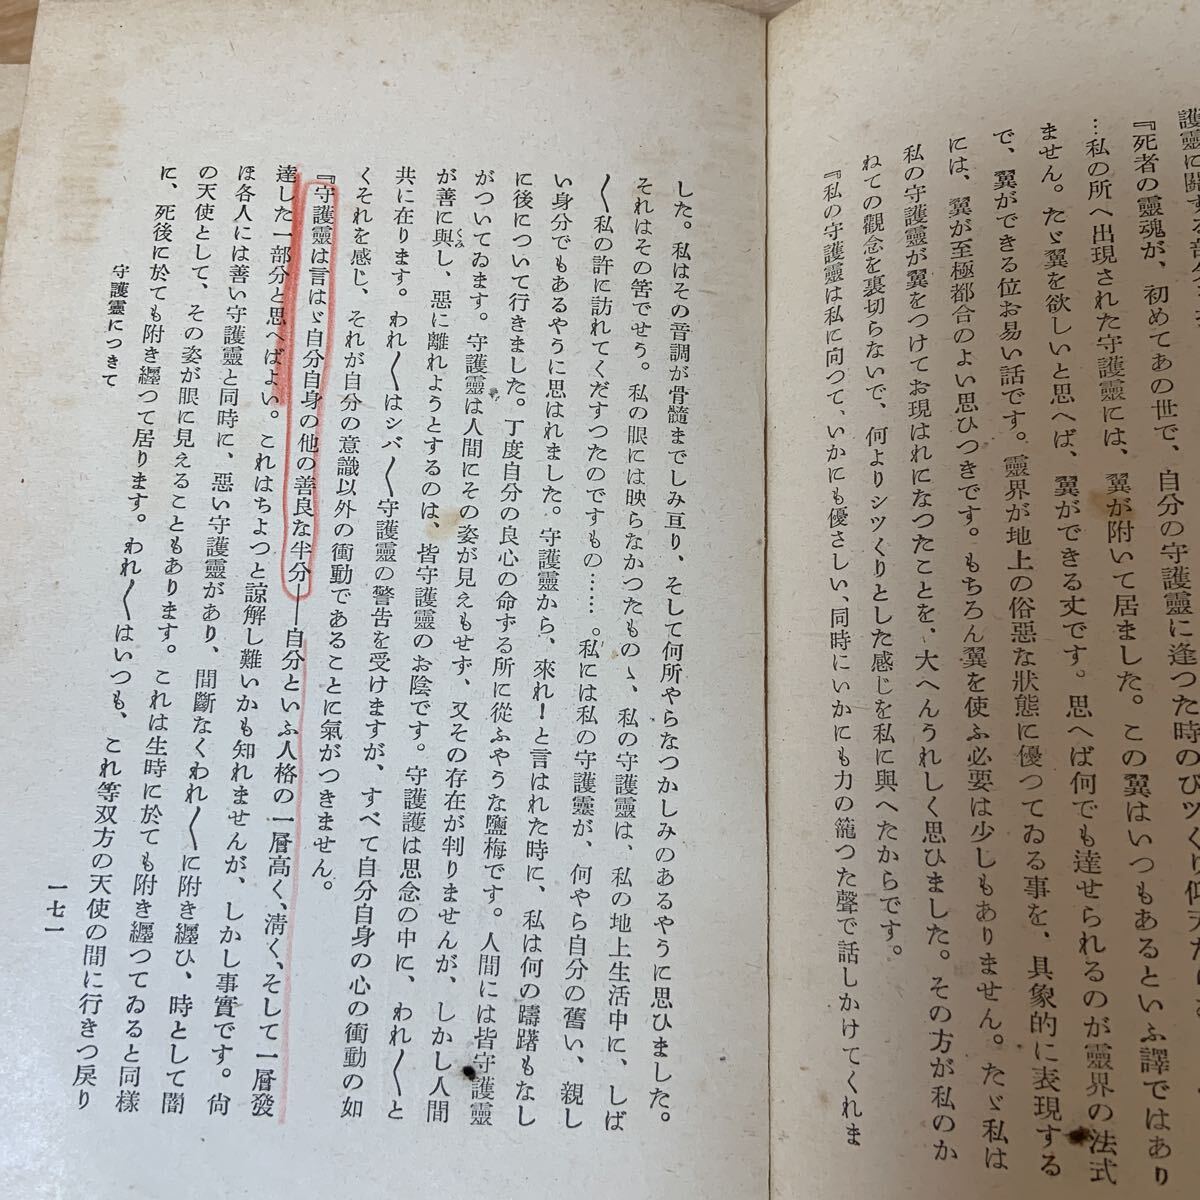 『死者の靈魂が、初めてあの世で、自分の守護靈に逢つた時のびツくり仰天だ
…私の所へ出現された守護靈には、翼が附いて居ました。この翼はいつもあるといふ譯ではあり
ません。たゞ翼を欲しいと思へば、翼ができる丈です。思へば何でも達せられるのが靈界の法式
で、翼ができる位お易い話です。靈界が地上の俗惡な狀態に優つてゐる事を、具象的に表現する
には、翼が至極都合のよい思ひつきです。もちろん翼を使ふ必要は少しもありません。たゞ私は
私の守護靈が翼をつけてお現はれになつたことを、大へんうれしく思ひました。その方が私のか
ねての觀念を裏切らないで、何よりシツくりとした感じを私に與へたからです。
『私の守護靈は私に向つて、いかにも優さしい、同時にいかにも力の籠つた聲で話しかけてくれま
した。私はその音調が骨髓までしみ亘り、そして何所やらなつかしみのあるやうに思ひました。
それはその筈でせう。私の眼には映らなかつたものゝ、私の守護靈は、私の地上生活中に、しば
〱私の許に訪れてくだすつたのですもの……。私には私の守護靈が、何やら自分の舊い、親し
い身分でもあるやうに思はれました。守護靈から、來れ！と言はれた時に、私は何の躊躇もなし
に後について行きました。丁度自分の良心の命ずる所に從ふやうな鹽梅です。人間には皆守護靈
がついてゐます。守護靈は人間にその姿が見えもせず、又その存在が判りませんが、しかし人間
が善に與し、惡に離れようとするのは、皆守護靈のお陰です。守護護は思念の中に、われ〱と
共に在ります。われ〱はシバ〱守護靈の警告を受けますが、すべて自分自身の心の衝動の如
くそれを感じ、それが自分の意識以外の衝動であることに氣がつきません。
『守護靈は言はゞ自分自身の他の善良な半分――自分といふ人格の一層高く、淸く、そして一層發
達した一部分と思へばよい。これはちよつと諒解し難いかも知れませんが、しかし事實です。尙
ほ各人には善い守護靈と同時に、惡い守護靈があり、間斷なくわれ〱に附き纒ひ、時として闇
の天使として、その姿が眼に見えることもあります。これは生時に於ても附き纒つてゐると同樣
に、死後に於ても附き纒つて居ります。われ〱はいつも、これ等双方の天使の間に行きつ戾り
守護靈につきて
一七一